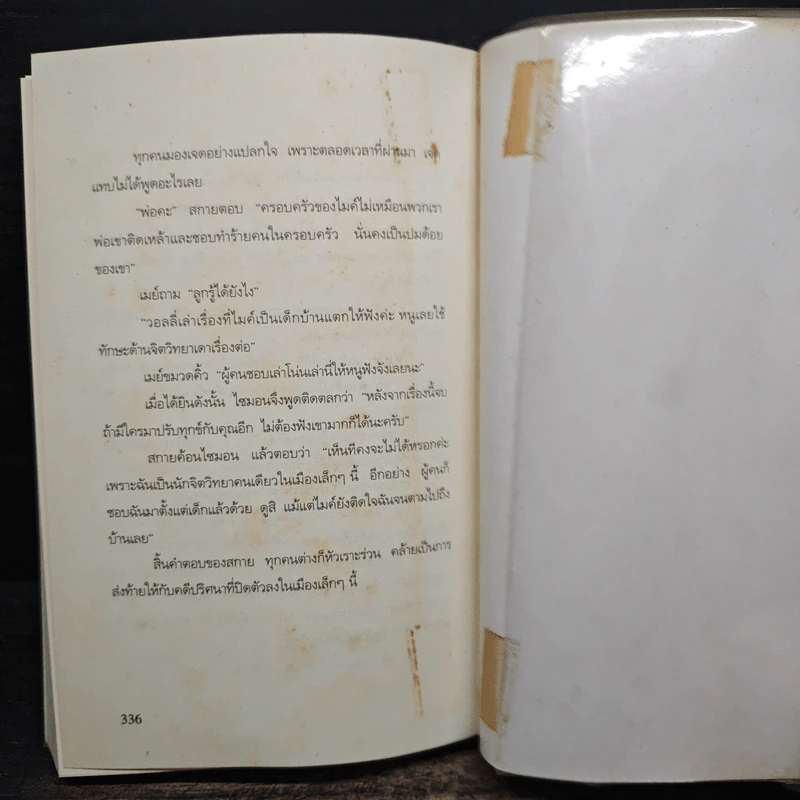 ทุกคนมองเจดอย่างแปลกใจ เพราะตลอดเวลาที่ผ่านมา เจด
แทบไม่ได้พูดอะไรเลย
"พ่อคะ" สกายตอบ "ครอบครัวของไมค์ไม่เหมือนพวกเรา
พ่อเขาติดเหล้าและชอบทำร้ายคนในครอบครัว นั่นคงเป็นปมด้อย
ของเขา"
เมย์ถาม "ลูกรู้ได้ยังไง"
"วอลลี่เล่าเรื่องที่ไมค์เป็นเด็กบ้านแตกให้ฟังค่ะ หนูเลยใช้
ทักษะด้านจิตวิทยาเดาเรื่องต่อ"
เมย์ขมวดคิ้ว "ผู้คนชอบเล่าโน่นเล่านี่ให้หนูฟังจังเลยนะ"
เมื่อได้ยินดังนั้น ไซมอนจึงพูดติดตลกว่า "หลังจากเรื่องนี้จบ
ถ้ามีใครมาปรับทุกข์กับคุณอีก ไม่ต้องฟังเขามากก็ได้นะครับ"
สกายค้อนไซมอน แล้วตอบว่า "เห็นทีคงจะไม่ได้หรอกค่ะ
เพราะฉันเป็นนักจิตวิทยาคนเดียวในเมืองเล็กๆ นี้ อีกอย่าง ผู้คนก็
ชอบฉันมาตั้งแต่เด็กแล้วด้วย ดูสิ แม้แต่ไมค์ยังติดใจฉันจนตามไปถึง
บ้านเลย"
สิ้นคำตอบของสกาย ทุกคนต่างก็หัวเราะร่วน คล้ายเป็นการ
ส่งท้ายให้กับคดีปริศนาที่ปิดตัวลงในเมืองเล็กๆ นี้
336